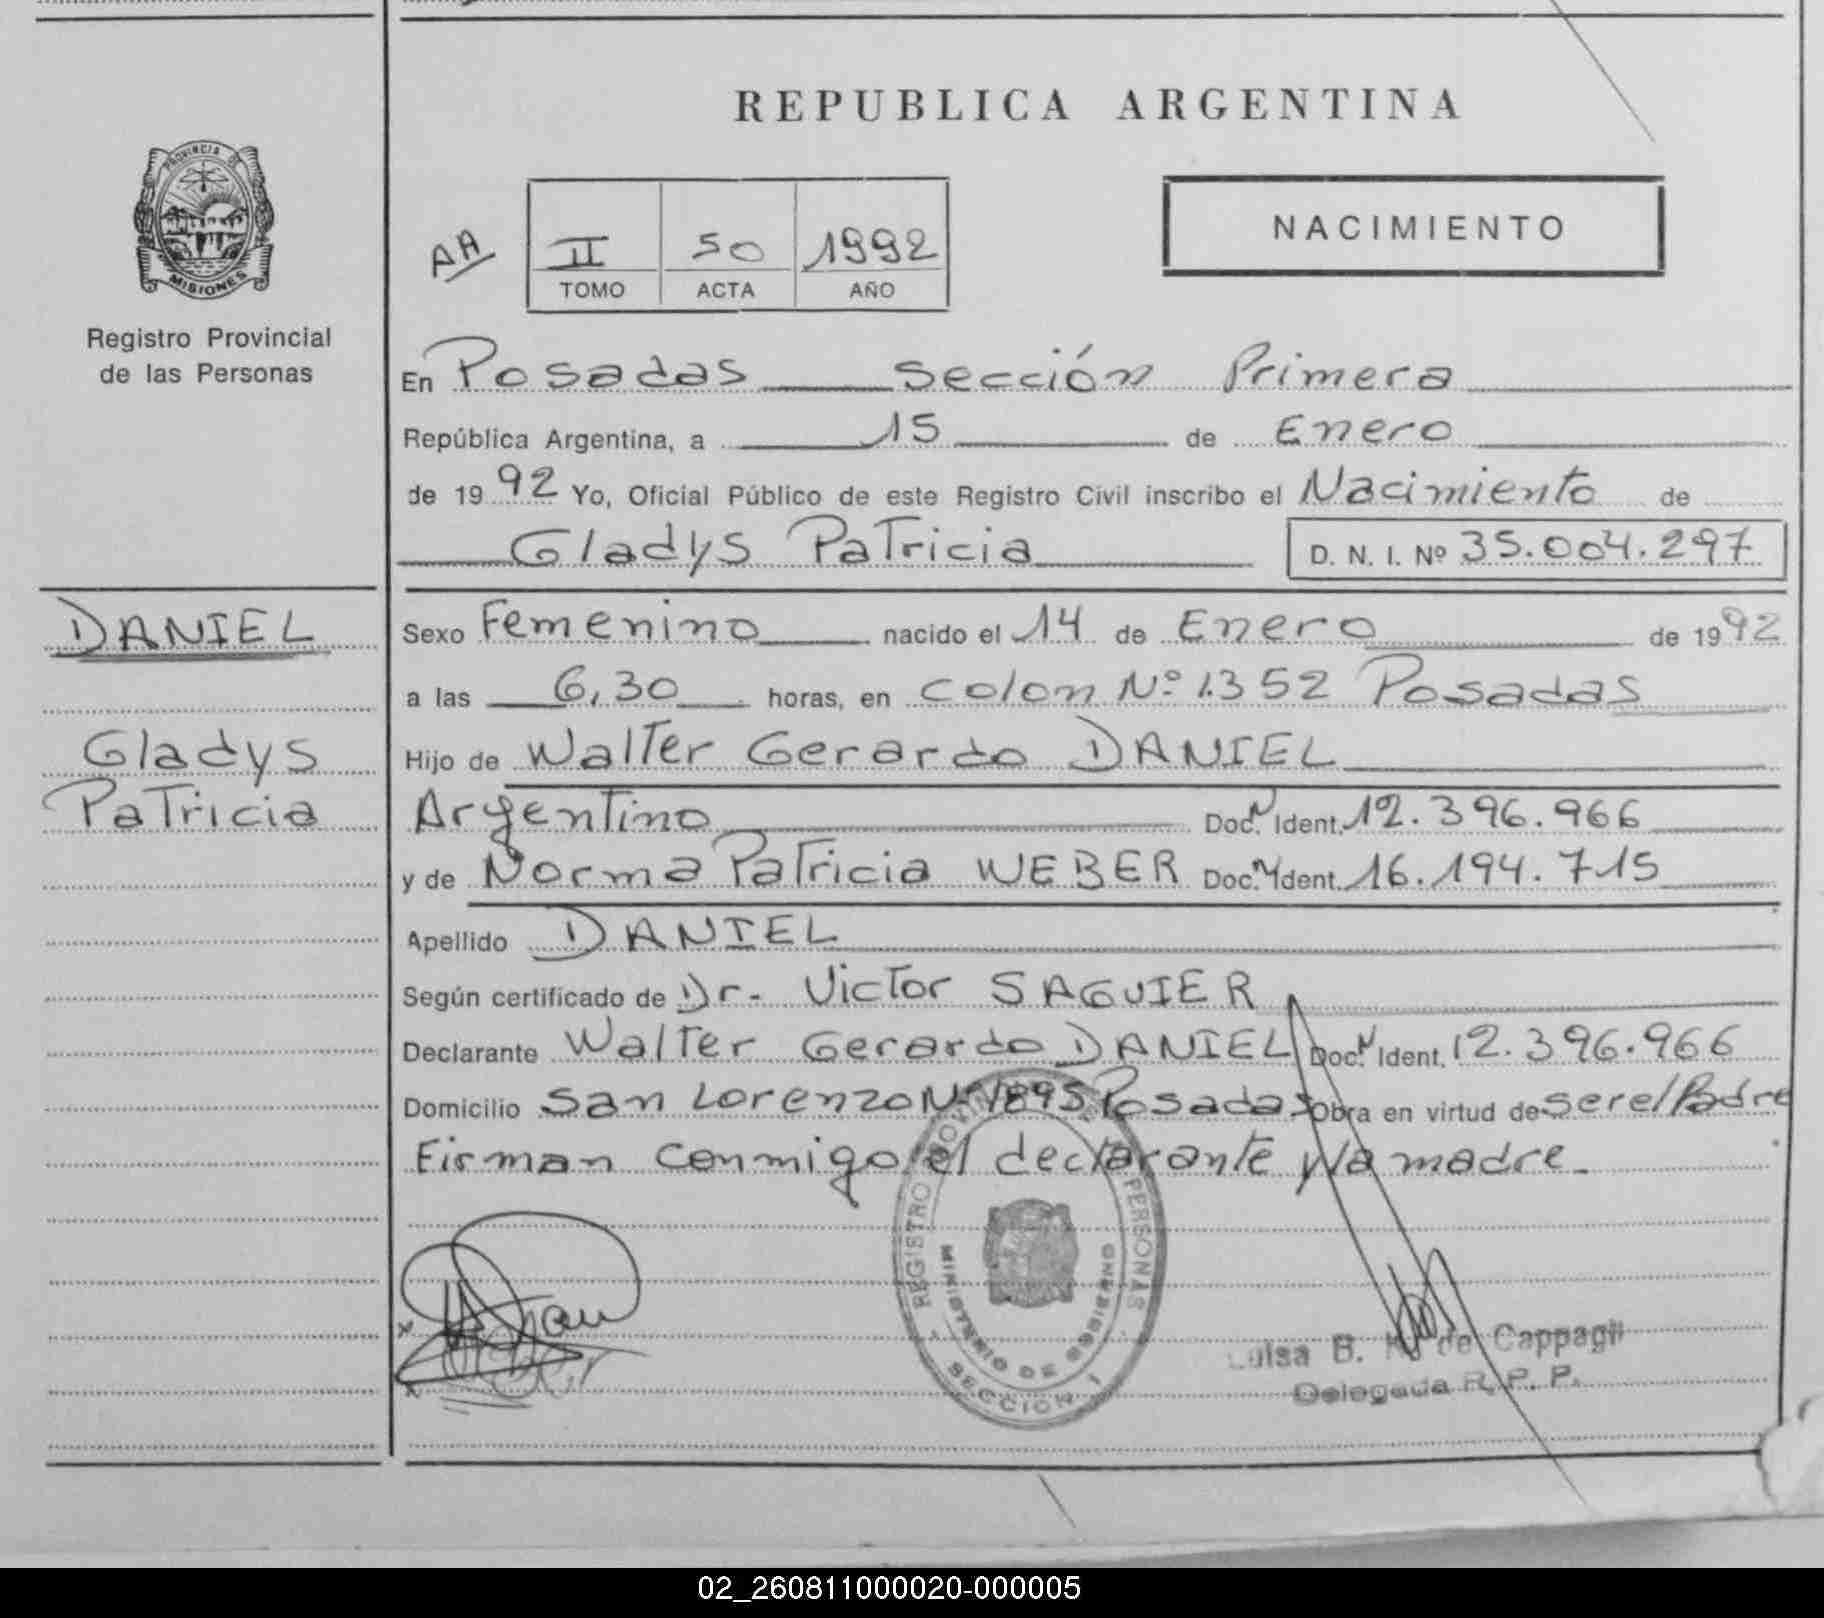 REPUBLICA ARGENTINA
PROVINCIA DE
MISIONES
Registro Provincial
de las Personas
AA
II 50 1992
TOMO ACTA AÑO
NACIMIENTO
En Posadas Sección Primera
República Argentina, a 15 de Enero
de 1992 Yo, Oficial Público de este Registro Civil inscribo el Nacimiento de
Gladys Patricia D. N. I. Nº 35.004.297
DANIEL
Gladys
Patricia
Sexo Femenino nacido el 14 de Enero de 1992
a las 6,30 horas, en Colon Nº 1352 Posadas
Hijo de Walter Gerardo DANIEL
Argentino Doc. N Ident. 12.396.966
y de Norma Patricia WEBER Doc. N Ident. 16.194.715
Apellido DANIEL
Según certificado de Dr. Victor SAGUIER
Declarante Walter Gerardo DANIEL Doc. N Ident. 12.396.966
Domicilio San Lorenzo Nº 1895 Posadas Obra en virtud de ser el Padre
Firman conmigo el declarante y la madre.
REGISTRO PERSONAS
MINISTERIO DE GOBIERNO
SECCION 1
Luisa B. de Cappagli
Delegada R. P. P.
02_260811000020-000005